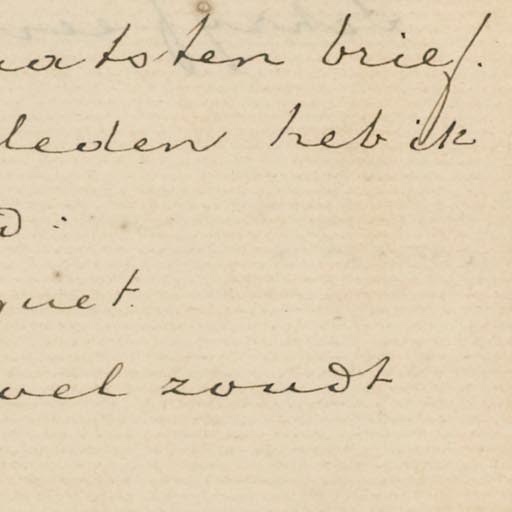 aatsten brief.
leden heb ik
d:
quet
wel zoudt